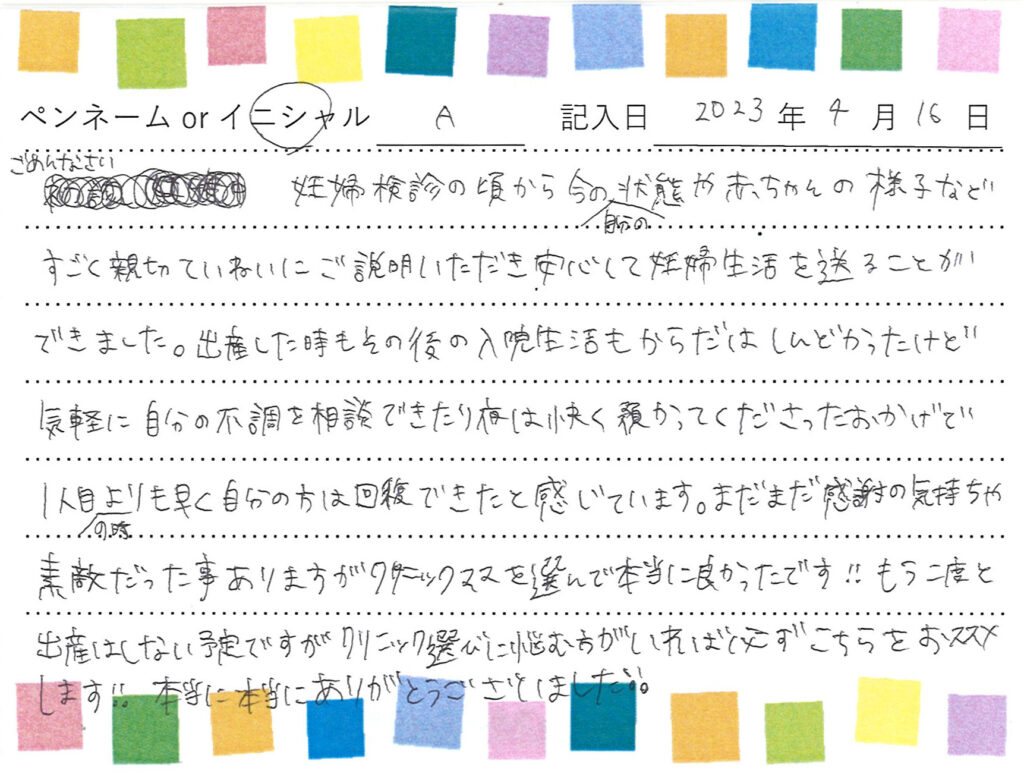 ペンネーム or イニシャル A 記入日 2023 年 4 月 16 日
ごめんなさい
妊婦検診の頃から今の状態や赤ちゃんの様子など
自分の
すごく親切ていねいにご説明いただき安心して妊婦生活を送ることが
できました。出産した時もその後の入院生活もからだはしんどかったけど
気軽に自分の不調を相談できたり夜は快く預かってくださったおかげで
1人目よりも早く自分の方は回復できたと感じています。まだまだ感謝の気持ちや
の時
素敵だった事ありますがクリニックママを選んで本当に良かったです!! もう二度と
出産はしない予定ですがクリニック選びに悩む方がいれば必ずこちらをおススメ
します!! 本当に本当にありがとうございました!!